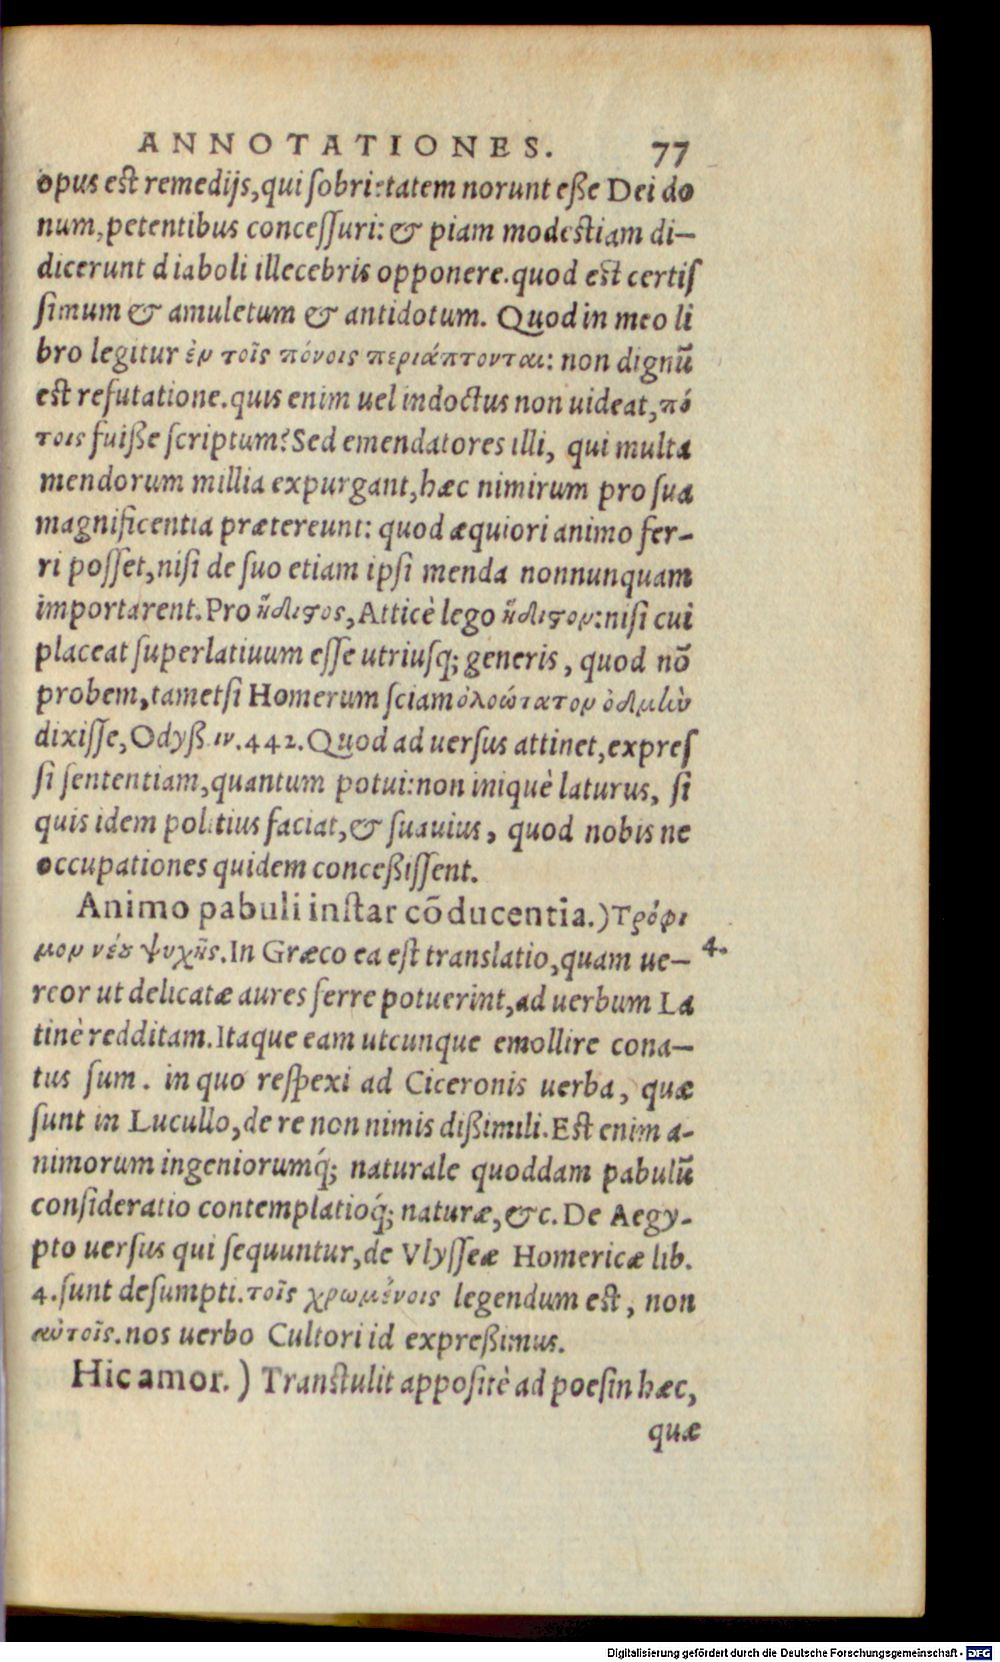 ANNOTATIONES. 77
opus est remedijs, qui sobrietatem norunt eße Dei do
num, petentibus concessuri: & piam modestiam di-
dicerunt diaboli illecebris opponere. quod est certis
simum & amuletum & antidotum. Quod in meo li
bro legitur ἐν τοῖς πόνοις περιάπτονται: non dignū
est refutatione. quis enim uel indoctus non uideat, πό
τοις fuiße scriptum? Sed emendatores illi, qui multa
mendorum millia expurgant, hæc nimirum pro sua
magnificentia prætereunt: quod æquiori animo fer-
ri posset, nisi de suo etiam ipsi menda nonnunquam
importarent. Pro ἥδιστος, Atticè lego ἥδιστον: nisi cui
placeat superlatiuum esse utriusq; generis, quod nō
probem, tametsi Homerum sciam ὀλοώτατον ὀδμὴν
dixisse, Odyß. .442. Quod ad uersus attinet, expres
si sententiam, quantum potui: non iniquè laturus, si
quis idem politius faciat, & suauius, quod nobis ne
occupationes quidem conceßissent.
Animo pabuli instar cōducentia.) Τρόφι
μον νέου ψυχῆς. In Græco ea est translatio, quam ue- 4.
reor ut delicatæ aures ferre potuerint, ad uerbum La
tinè redditam. Itaque eam utcunque emollire cona-
tus sum. in quo respexi ad Ciceronis uerba, quæ
sunt in Lucullo, de re non nimis dißimili. Est enim a-
nimorum ingeniorumq́; naturale quoddam pabulū
consideratio contemplatioq́; naturæ, &c. De Aegy-
pto uersus qui sequuntur, de Vlysseæ Homericæ lib.
4. sunt desumpti. τοῖς χρωμένοις legendum est, non
αὐτοῖς. nos uerbo Cultori id expreßimus.
Hic amor.) Transtulit appositè ad poesin hæc,
quæ
Digitalisierung gefördert durch die Deutsche Forschungsgemeinschaft - DFG